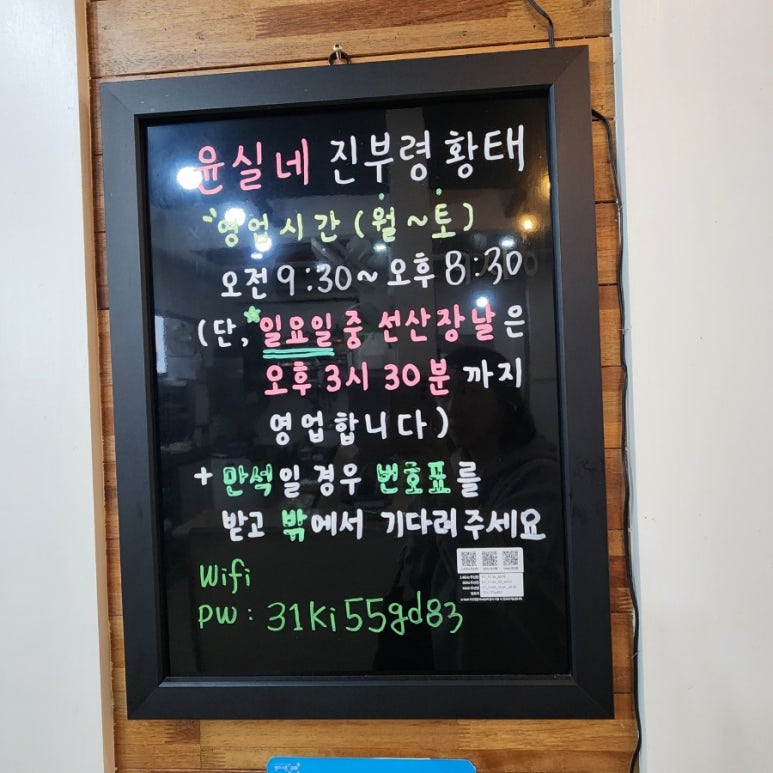 윤실네 진부령황태
영업시간 (월~토)
오전 9:30~오후 8:30
(단, *일요일 중 선산장날은
오후 3시 30분 까지
영업합니다)
+ 만석일 경우 번호표를
받고 밖에서 기다려주세요
Wifi
PW : 31Ki55gd83